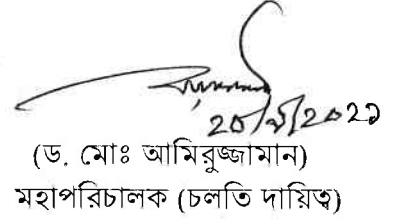 ২০/৬/২০২১
(ড. মোঃ আমিরুজ্জামান)
মহাপরিচালক (চলতি দায়িত্ব)